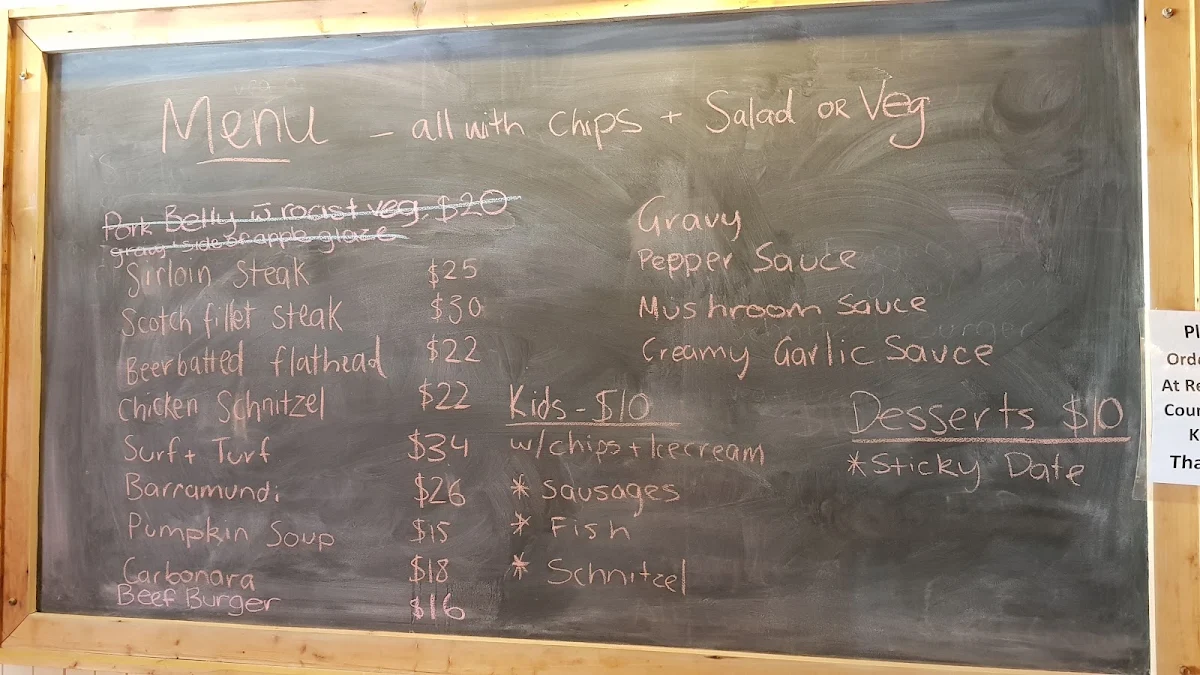 Menu - all with chips + Salad OR Veg
Pork Belly w̄ roast veg, $20
gravy + side of apple glaze
Sirloin Steak $25
Scotch fillet Steak $30
Beerbatted flathead $22
Chicken Schnitzel $22
Surf + Turf $34
Barramundi $26
Pumpkin Soup $15
Carbonara $18
Beef Burger $16
Gravy
Pepper Sauce
Mushroom Sauce
Creamy Garlic Sauce
Kids - $10
w/chips + Icecream
* Sausages
* Fish
* Schnitzel
Desserts $10
* Sticky Date